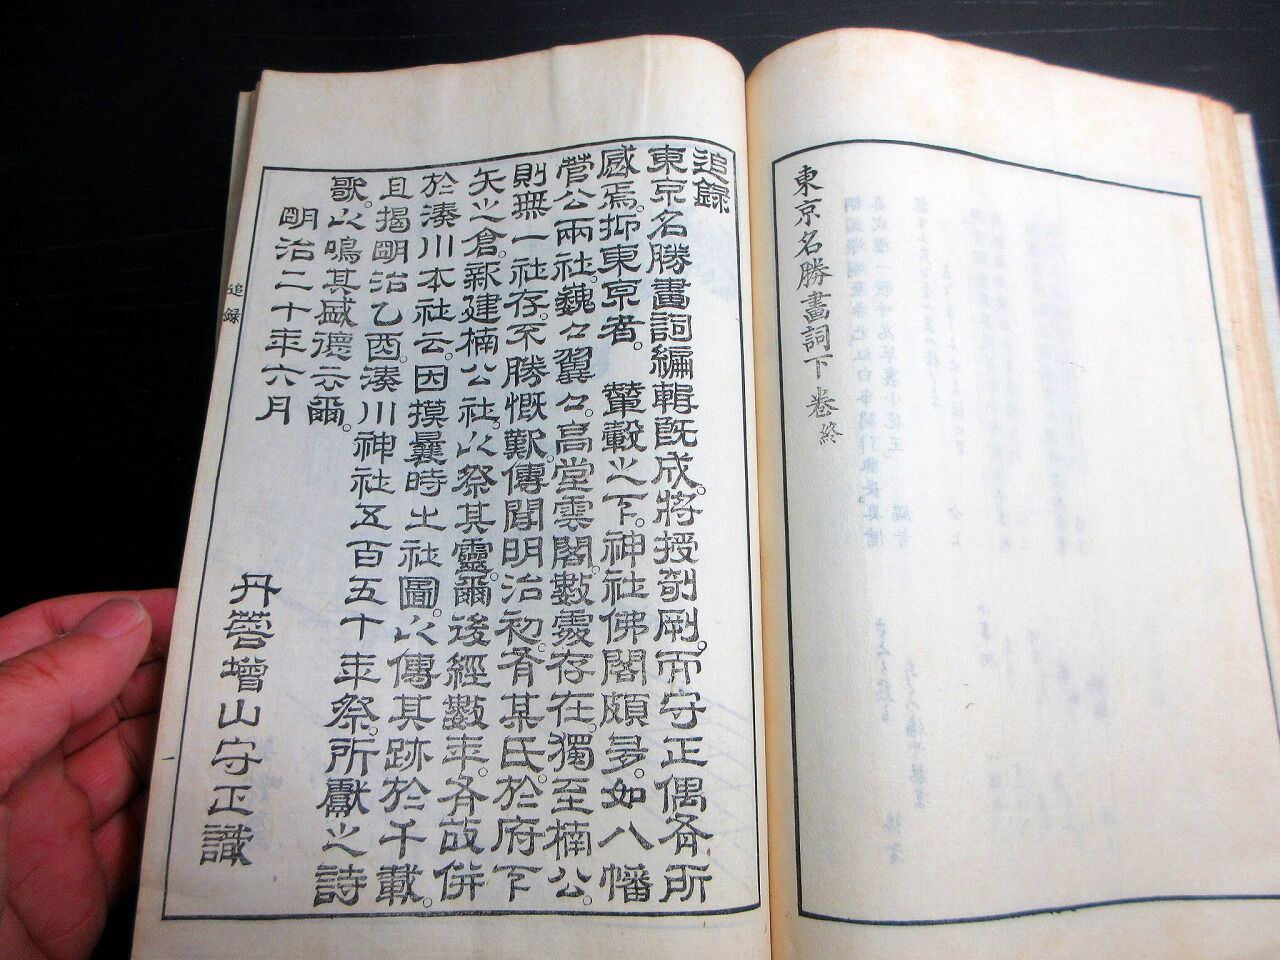 東京名勝畫詞下卷終
追錄
東京名勝畫詞編輯旣成。將授剞劂。而守正偶有所
感焉。抑東京者。輦轂之下。神社佛閣頗多。如八幡
菅公兩社。巍々翼々。高堂雲閣。數處存在。獨至楠公。
則無一社存。不勝慨歎。傳聞明治初。有某氏。於府下
矢之倉。新建楠公社。以祭其靈。爾後經數年。有故併
於湊川本社云。因摸曩時之社圖。以傳其跡於千載。
且揭明治乙酉。湊川神社五百五十年祭。所獻之詩
歌。以鳴其盛德云爾。
明治二十年六月
丹蓉增山守正識
追錄
一